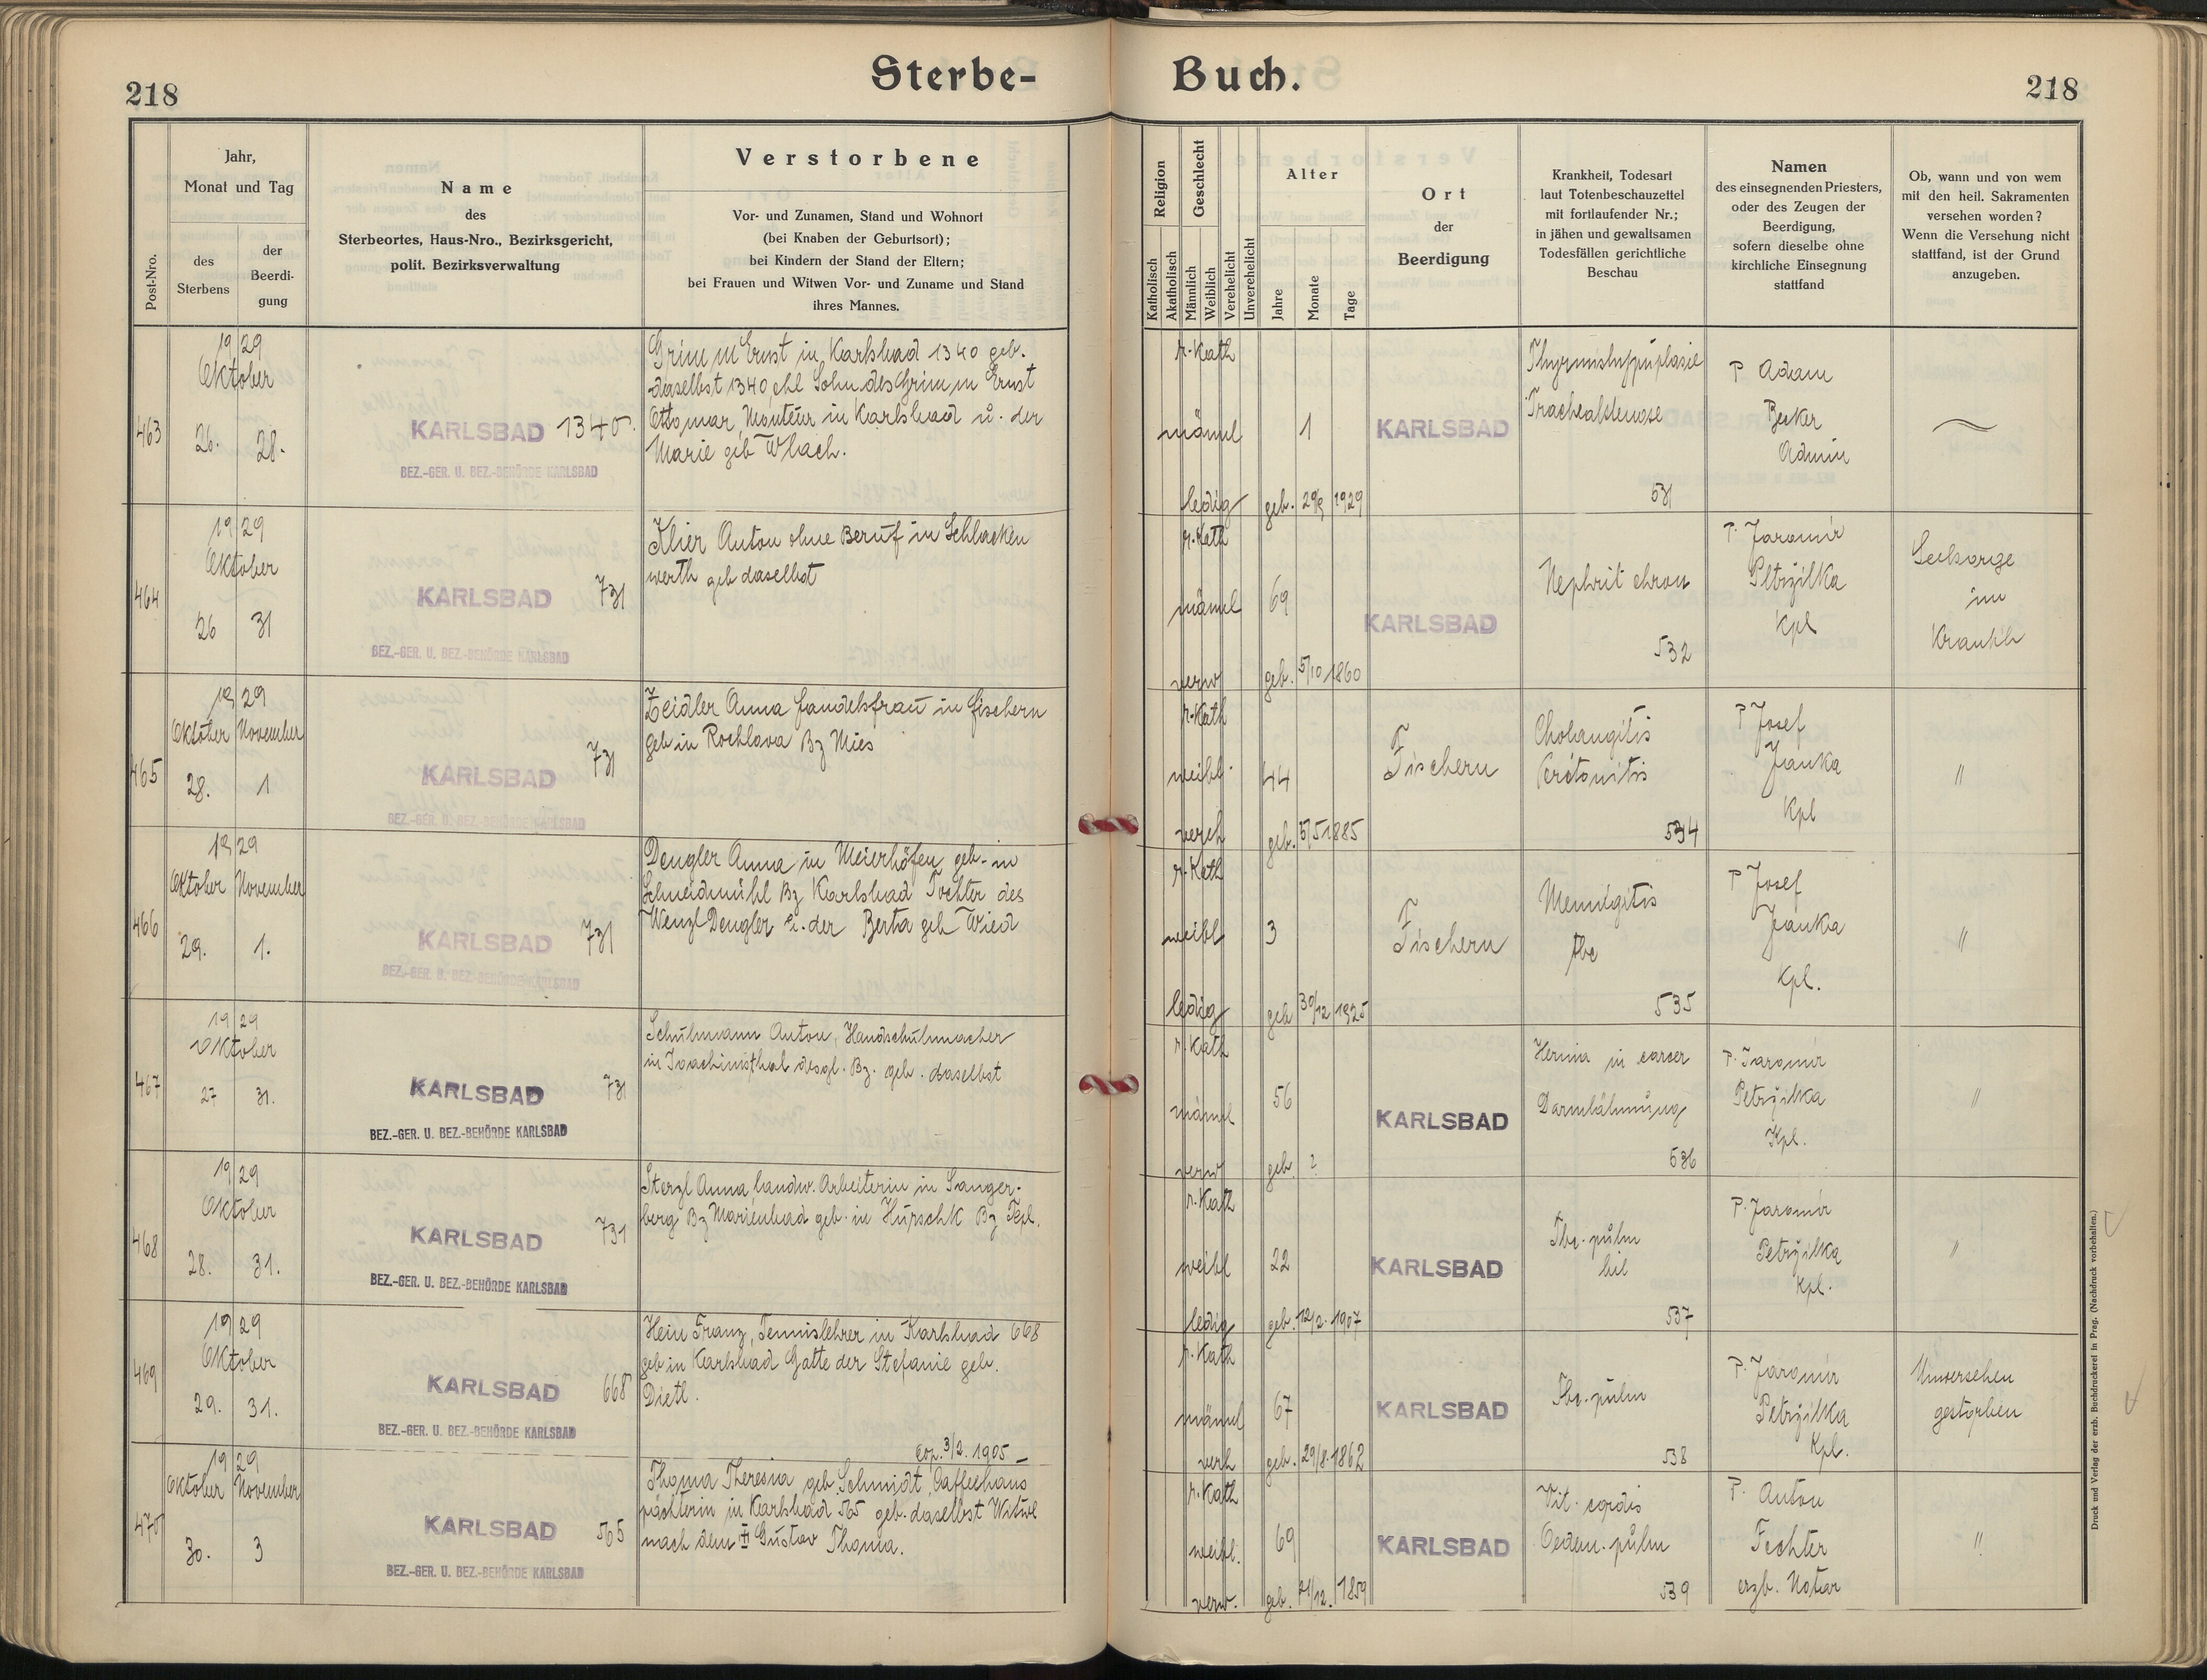 218
Sterbe-
Buch.
218
Post-Nro.
Jahr,
Monat und Tag
des
Sterbens
der
Beerdi-
gung
Name
des
Sterbeortes, Haus-Nro., Bezirksgericht,
polit. Bezirksverwaltung
Verstorbene
Vor- und Zunamen, Stand und Wohnort
(bei Knaben der Geburtsort);
bei Kindern der Stand der Eltern;
bei Frauen und Witwen Vor- und Zuname und Stand
ihres Mannes.
Religion
Katholisch
Akatholisch
Geschlecht
Männlich
Weiblich
Verehelicht
Unverehelicht
Alter
Jahre
Monate
Tage
Ort
der
Beerdigung
Krankheit, Todesart
laut Totenbeschauzettel
mit fortlaufender Nr.;
in jähen und gewaltsamen
Todesfällen gerichtliche
Beschau
Namen
des einsegnenden Priesters,
oder des Zeugen der
Beerdigung,
sofern dieselbe ohne
kirchliche Einsegnung
stattfand
Ob, wann und von wem
mit den heil. Sakramenten
versehen worden?
Wenn die Versehung nicht
stattfand, ist der Grund
anzugeben.
463
1929
Oktober
26. 28.
KARLSBAD 1340.
BEZ.-GER. U. BEZ.-BEHÖRDE KARLSBAD
Grimm Ernst in Karlsbad 1340 geb.
daselbst 1340, ehl Sohn des Grimm Ernst
Ottomar, Monteur in Karlsbad u. der
Marie geb Wlach.
r. Kath
männl
ledig
1
geb. 29/9 1929
KARLSBAD
Trachealstenose
531
P Adam
Becker
Admin
464
1929
Oktober
26 31
KARLSBAD 731
BEZ.-GER. U. BEZ.-BEHÖRDE KARLSBAD
Klier Anton ohne Beruf in Schlacken
werth geb daselbst
r. Kath
männl
verw
69
geb. 5/10 1860
KARLSBAD
Nephrit chron
532
P. Jaromir
Petržilka
Kpl
Seelsorge
im
Krankh
465
1929
Oktober November
28. 1
KARLSBAD 731
BEZ.-GER. U. BEZ.-BEHÖRDE KARLSBAD
Zeidler Anna Handelsfrau in Fischern
geb in Rochlava Bz Mies
r. Kath
weibl.
verh
44
geb. 5/5 1885
Fischern
Cholangitis
Peritonitis
534
P Josef
Janka
Kpl
"
466
1929
Oktober November
29. 1.
KARLSBAD 731
BEZ.-GER. U. BEZ.-BEHÖRDE KARLSBAD
Dengler Anna in Meierhöfen, geb. in
Schneidmühl Bz Karlsbad Tochter des
Wenzl Dengler u. der Berta geb Wied
r. Kath
weibl
ledig
3
geb 30/12 1925
Fischern
Meningitis
tbc
535
P Josef
Janka
Kpl.
"
467
1929
Oktober
27 31.
KARLSBAD 731
BEZ.-GER. U. BEZ.-BEHÖRDE KARLSBAD
Schuhmann Anton, Handschuhmacher
in Joachimsthal desgl. Bz. geb. daselbst
r. Kath
männl
verw
56
geb. ?
KARLSBAD
Hernia in carcer
Darmlähmung
536
P. Jaromir
Petržilka
Kpl.
"
468
1929
Oktober
28. 31.
KARLSBAD 731
BEZ.-GER. U. BEZ.-BEHÖRDE KARLSBAD
Sterzl Anna, landw. Arbeiterin in Sanger-
berg Bz Marienbad geb. in Hurschk Bz Tepl.
r. Kath
weibl
ledig
22
geb. 12/2. 1907
KARLSBAD
Tbc. pulm
bil
537
P. Jaromir
Petržilka
Kpl.
"
469
1929
Oktober
29. 31.
KARLSBAD 668
BEZ.-GER. U. BEZ.-BEHÖRDE KARLSBAD
Hein Franz, Tennislehrer in Karlsbad 668
geb in Karlsbad Gatte der Stefanie geb.
Dietl.
Cop. 3/2. 1905
r. Kath
männl
verh
67
geb. 29/8. 1862
KARLSBAD
Tbc. pulm
538
P. Jaromir
Petržilka
Kpl.
Unversehen
gestorben
470
1929
Oktober November
30. 3
KARLSBAD 565
BEZ.-GER. U. BEZ.-BEHÖRDE KARLSBAD
Thoma Theresia geb. Schmidt Caffeehaus
pächterin in Karlsbad 565 geb. daselbst Witwe
nach dem Gustav Thoma.
r. Kath
weibl.
verw.
69
geb. 21/12. 1859
KARLSBAD
Vit. cordis
Oedem. pulm
539
P. Anton
Fechter
erzb. Notar
"
Druck und Verlag der erzb. Buchdruckerei in Prag. (Nachdruck vorbehalten.)